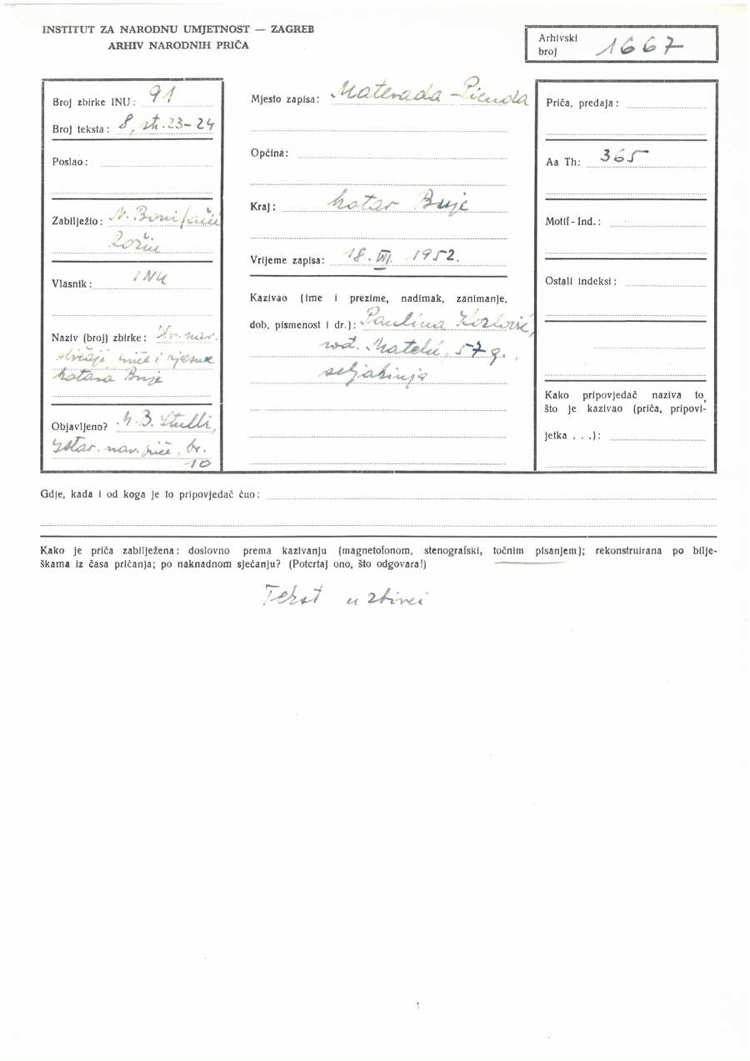 INSTITUT ZA NARODNU UMJETNOST — ZAGREB
ARHIV NARODNIH PRIČA
Arhivski broj 1667
Broj zbirke INU: 91
Broj teksta: 8, str. 23-24
Poslao:
Zabilježio: N. Bonifačić
Rožin
Vlasnik: INU
Naziv (broj) zbirke: Hr. nar.
običaji, priče i pjesme
kotara Buje
Objavljeno? M. B. Stulli,
Istar. nar. prič., br.
10
Mjesto zapisa: Materada -
Općina:
Kraj: kotar Buje
Vrijeme zapisa: 18. 1952.
Kazivao (ime i prezime, nadimak, zanimanje,
dob, pismenost i dr.): Paulina Kozlović,
rođ. 57 g.,
seljakinja
Priča, predaja:
Aa Th: 365
Motif-Ind.:
Ostali indeksi:
Kako pripovjedač naziva to,
što je kazivao (priča, pripovi-
jetka . . .):
Gdje, kada i od koga je to pripovjedač čuo:
Kako je priča zabilježena: doslovno prema kazivanju (magnetofonom, stenografski, točnim pisanjem); rekonstruirana po bilje-
škama iz časa pričanja; po naknadnom sjećanju? (Potcrtaj ono, što odgovara!)
Tekst u zbirci